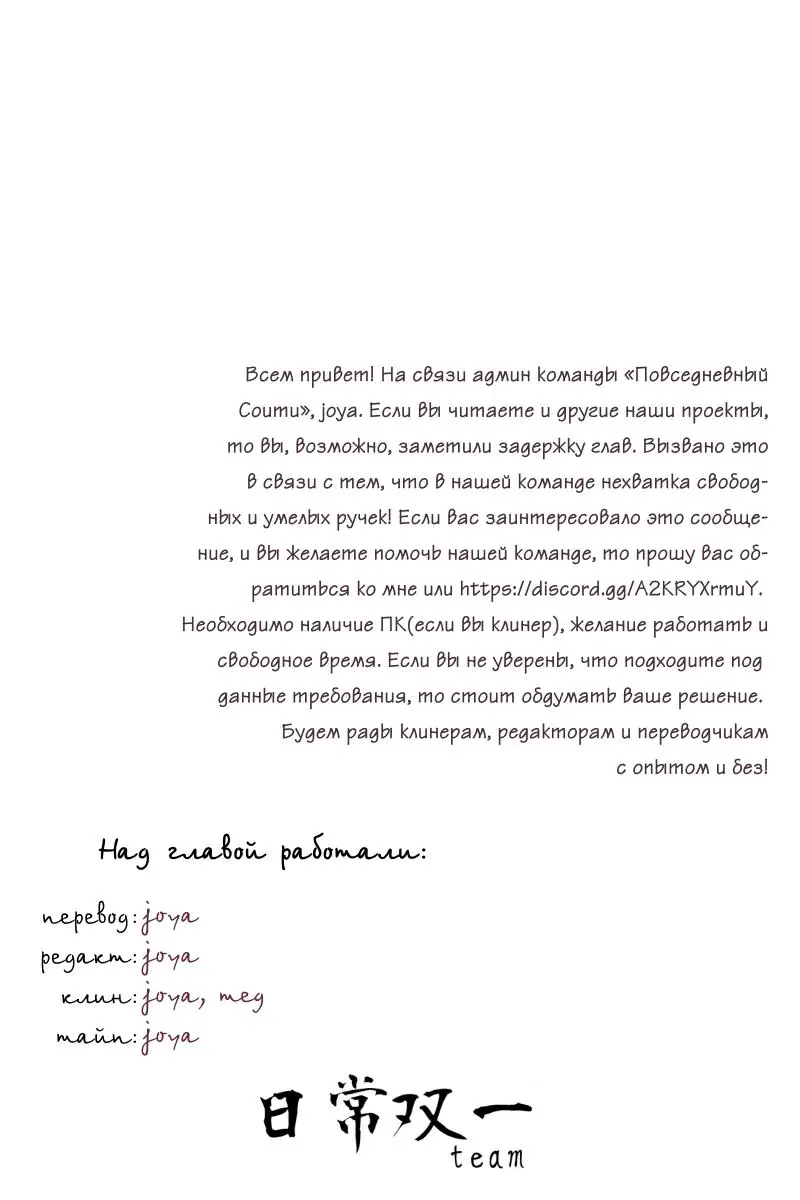 Всем привет! На связи админ команды «Повседневный
Соити», joya. Если вы читаете и другие наши проекты,
то вы, возможно, заметили задержку глав. Вызвано это
в связи с тем, что в нашей команде нехватка свобод-
ных и умелых ручек! Если вас заинтересовало это сообще-
ние, и вы желаете помочь нашей команде, то прошу вас об-
ратиться ко мне или https://discord.gg/A2KRYXrmuY.
Необходимо наличие ПК(если вы клинер), желание работать и
свободное время. Если вы не уверены, что подходите под
данные требования, то стоит обдумать ваше решение.
Будем рады клинерам, редакторам и переводчикам
с опытом и без!
Над главой работали:
перевод: joya
редакт: joya
клин: joya, тед
тайп: joya
日常双一
team